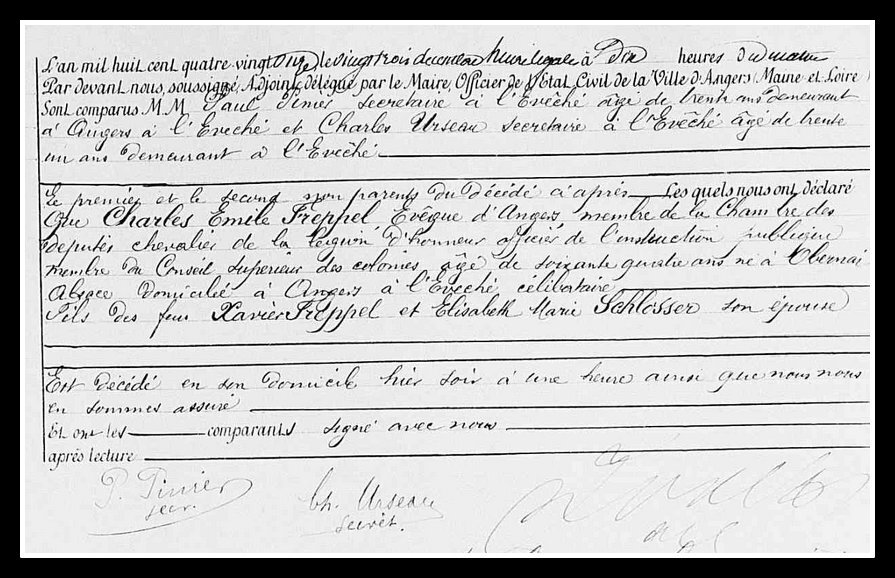 L'an mil huit cent quatre-vingt onze le vingt trois decembre heure legale à dix heures du matin
Par devant nous, soussigné, Adjoint délégué par le Maire, Officier de l'Etat Civil de la Ville d'Angers (Maine et Loire)
Sont comparus M.M. Paul Pinier secretaire à l'Evêché âgé de trente ans demeurant
à Angers à l'Evêché et Charles Urseau secretaire à l'Evêché âgé de trente
un ans demeurant à l'Evêché
Le premier et le second non parents du décédé ci après Les quels nous ont déclaré
Que Charles Emile Freppel, Evêque d'Angers membre de la Chambre des
deputés chevalier de la légion d'honneur officier de l'instruction publique
membre du Conseil superieur des colonies âgé de soixante quatre ans né à Obernai
Alsace domicilié à Angers à l'Evêché célibataire
Fils des feus Xavier Freppel et Elisabeth Marie Schlosser son épouse
Est décédé en son domicile hier soir à une heure ainsi que nous nous
en sommes assuré
Et ont les comparants signé avec nous
après lecture
P. Pinier
secr.
Ch. Urseau
secrét.